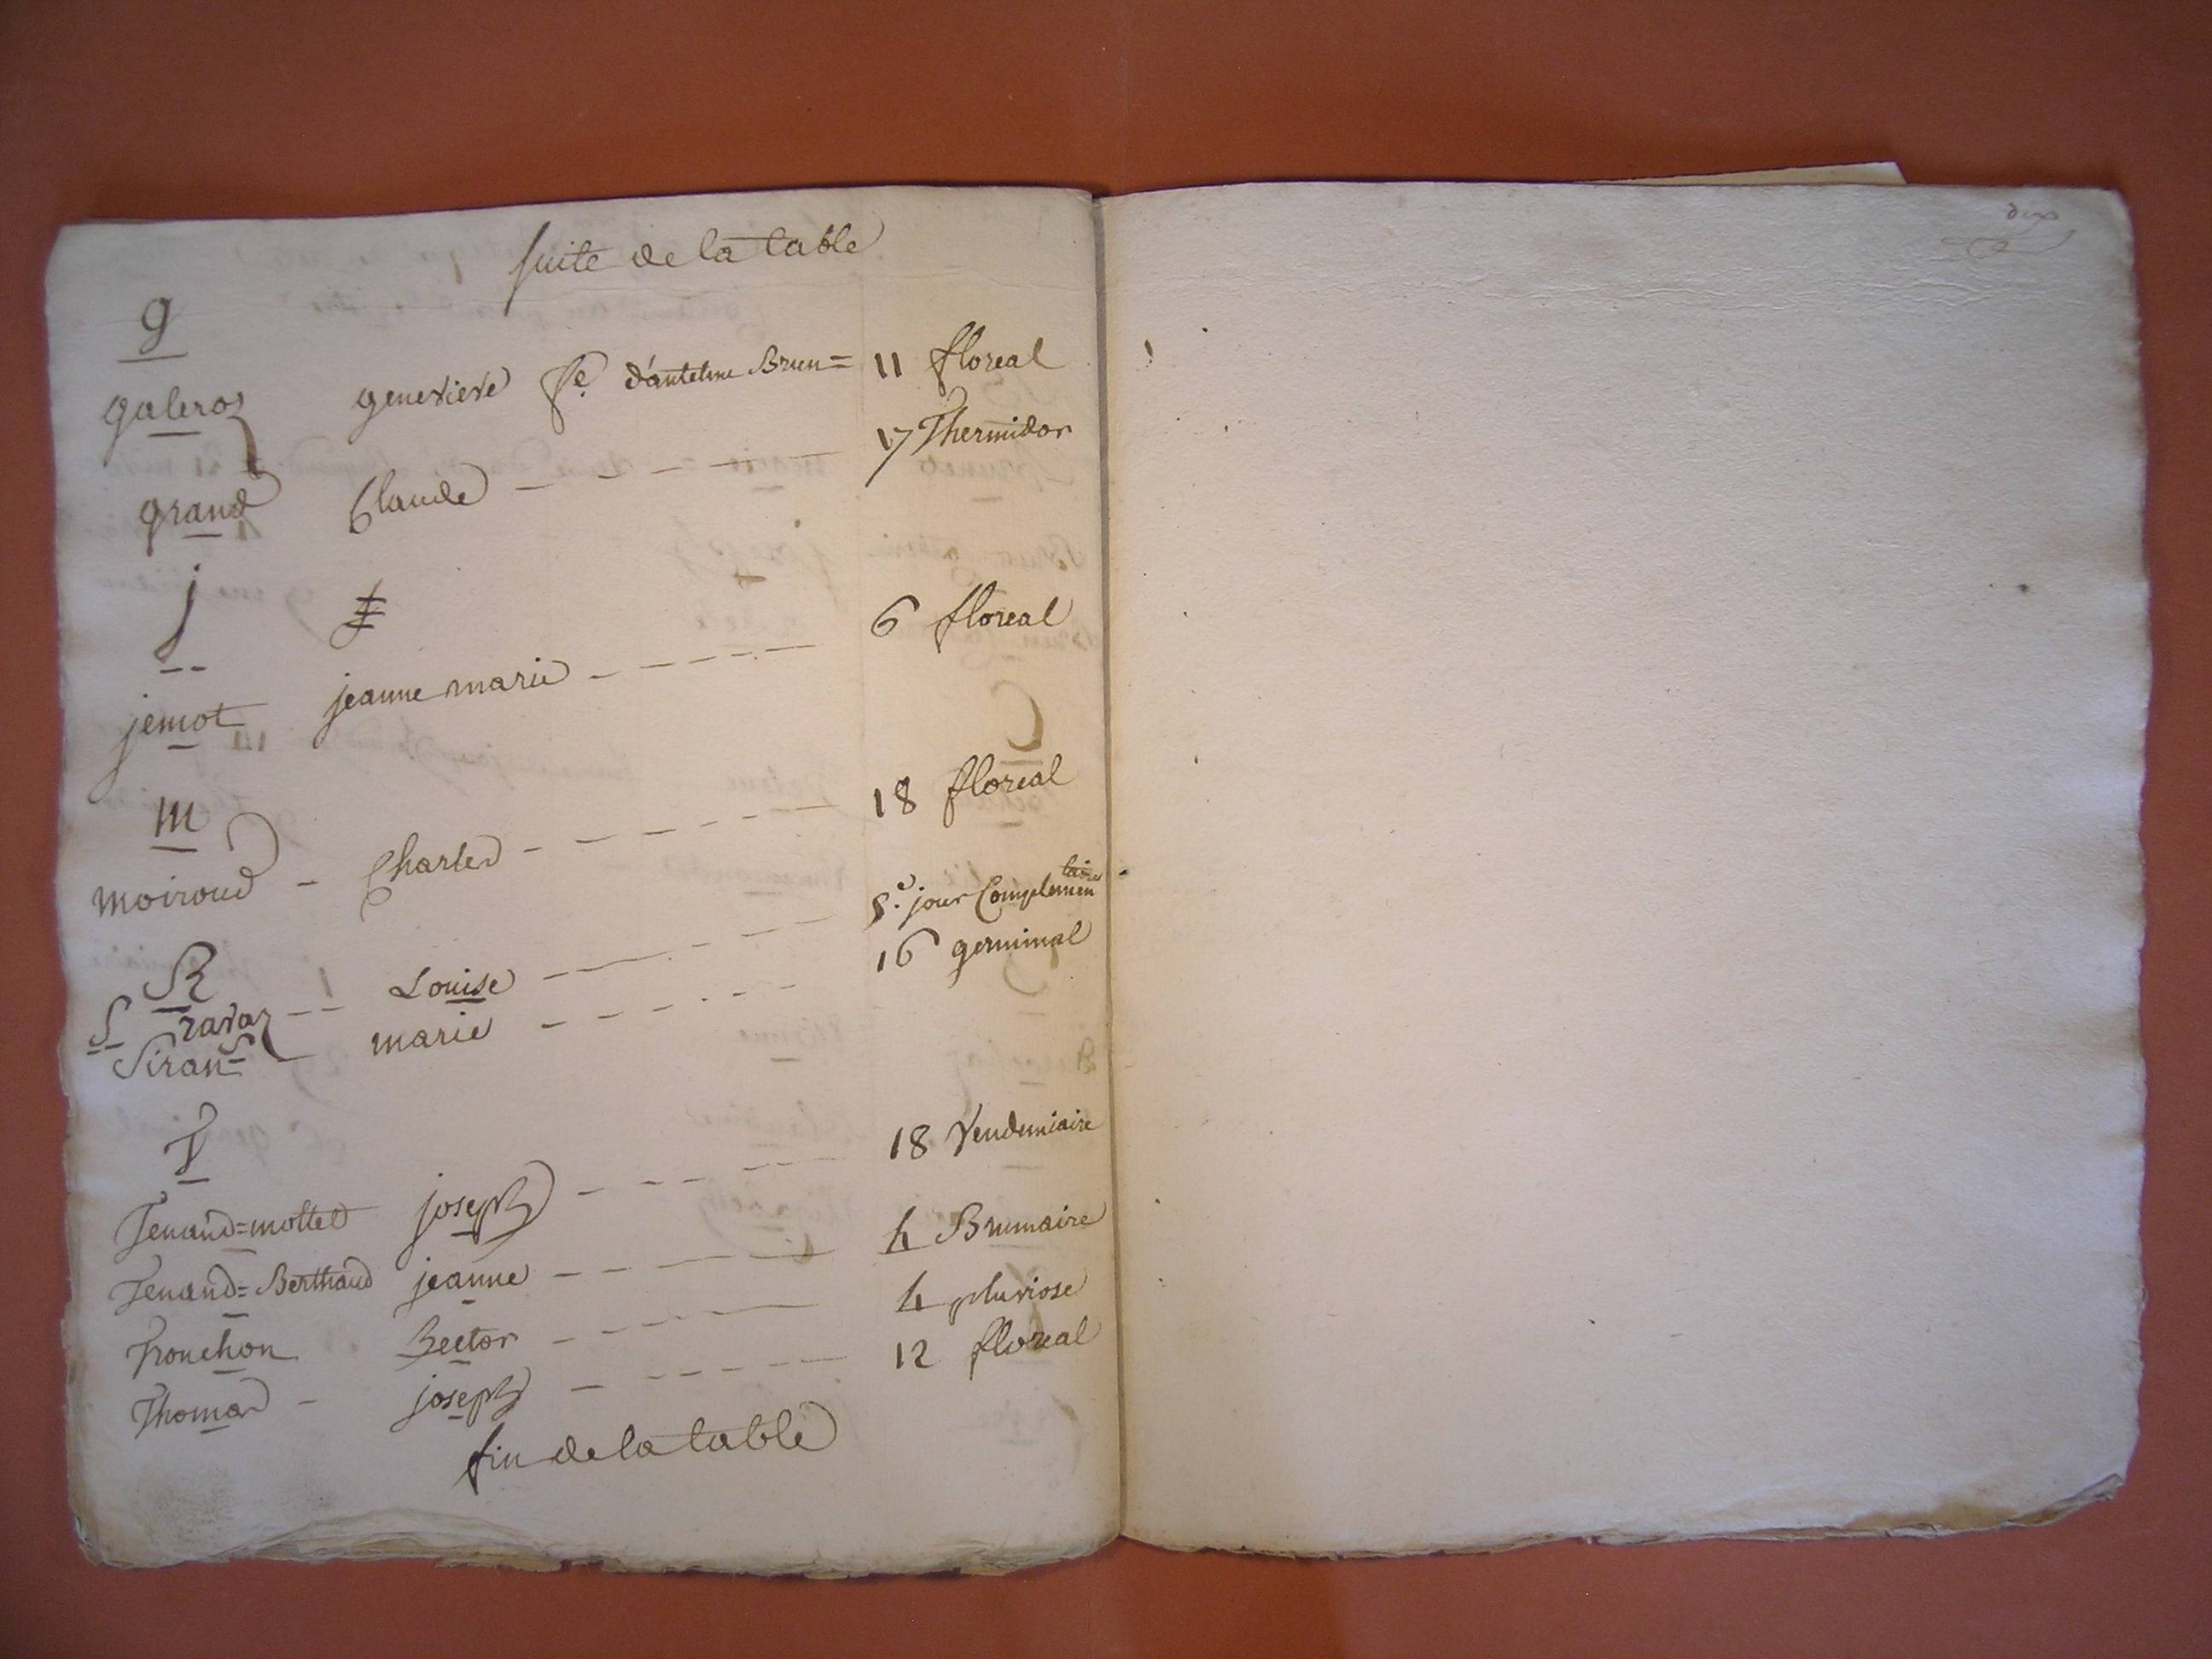 suite de la table
g
galeroz genevieve fe. d'antelme Brun= 11 floreal
grand Claude 17 Thermidor
j
jemot jeanne marie 6 floreal
m
moiroud - Charles 18 floreal
R
ravaz Louise 5e. jour Complemen taire
S
Siran= marie 16 germinal
T
Tenand=mottet joseph 18 Vendemiaire
Tenand=Berthaud jeanne 4 Brumaire
Tronchon hector 4 pluviose
Thomas - joseph 12 floreal
fin de la table
dix